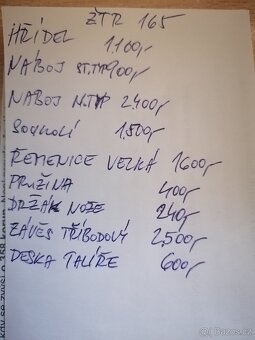 ŽTR 165
HŘÍDEL 1.100,-
NÁBOJ ST.TYP 900,-
NÁBOJ N.TYP 2.400,-
SOUKOLÍ 1.500,-
ŘEMENICE VELKÁ 1600,-
PRUŽINA 400,-
DRŽÁK NOŽE 240,-
ZÁVĚS TŘÍBODOVÝ 2.500,-
DESKA TALÍŘE 600,-
Bazos.cz